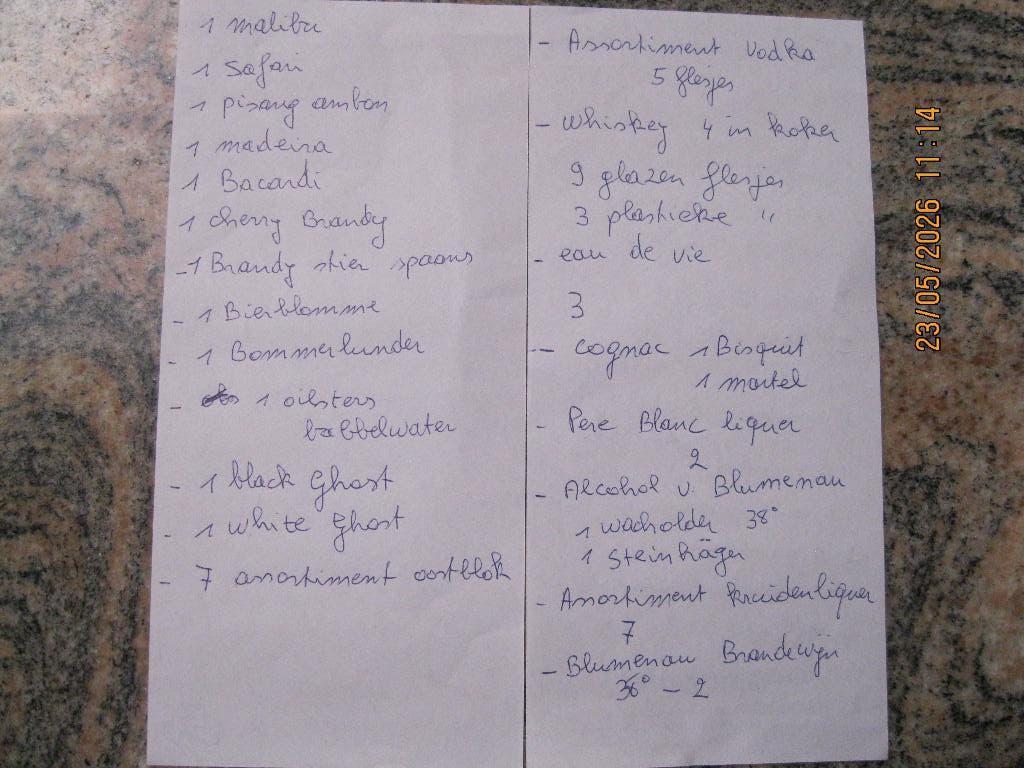 1 malibu
1 Safari
1 pisang ambon
1 madeira
1 Bacardi
1 cherry Brandy
-1 Brandy stier spaans
- 1 Bierblomme
- 1 Bommerlunder
- 1 oilsters
babbelwater
- 1 black Ghost
- 1 white Ghost
- 7 assortiment oostblok
- Assortiment Vodka
5 flesjes
- Whiskey 4 in koker
9 glazen flesjes
3 plastieke "
- eau de vie
3
- cognac 1 Bisquit
1 martel
- Pere Blanc liquer
2
- Alcohol v. Blumenau
1 wacholder 38°
1 Steinhäger
- Assortiment kruidenliquer
7
- Blumenau Brandewijn
36° - 2
23/05/2026 11:14